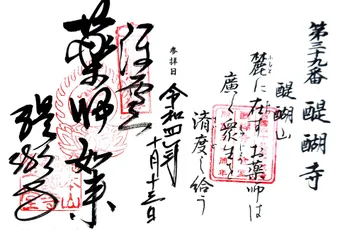 第三十九番 醍醐寺
醍醐山
麓に在す お薬師は
ふもと
廣く衆生を
済度し給う
参拝日
令和四年
十月十三日
薬師如来
醍醐寺